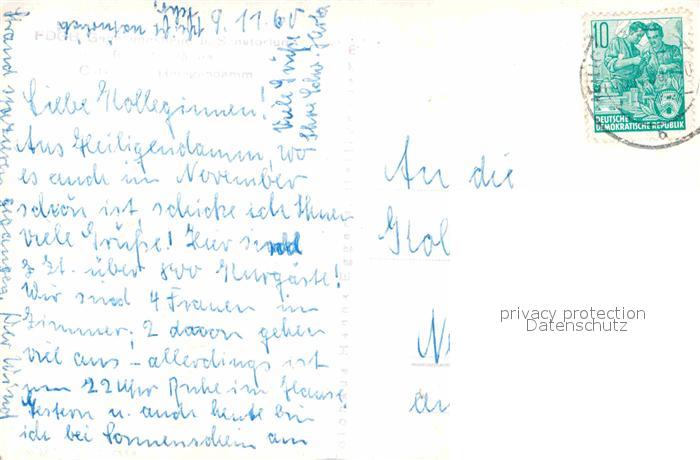 9.11.60
Liebe Kolleginnen!
Aus Heiligendamm, wo
es auch im November
schön ist, schicke ich Ihnen
viele Grüße! Hier sind
z. Zt. über 800 Kurgäste!
Wir sind 4 Frauen im
Zimmer; 2 davon gehen
viel aus – allerdings ist
um 22 Uhr Ruhe im Hause
Gestern u. auch heute bin
ich bei Sonnenschein am
Strand spazieren gegangen. Der Wind
Viele Grüße
Ihre
An die
Kol
10
DEUTSCHE
DEMOKRATISCHE REPUBLIK
privacy protection
Datenschutz